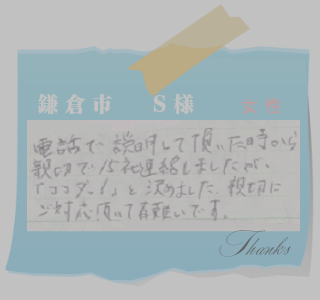 鎌倉市　S様　女性
電話で説明して頂いた時から
親切で15社連絡しましたが、
「ココダ。!」と決めました。親切に
ご対応頂いて有難いです。
Thanks